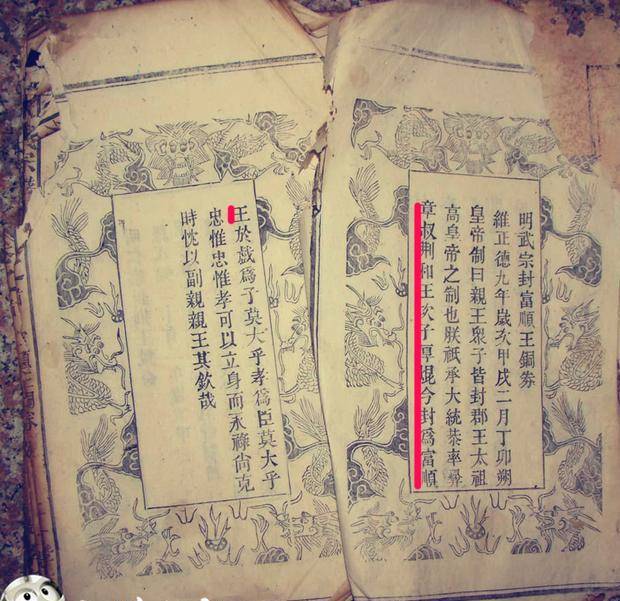 明武宗封富順王銅券
維正德九年歲次甲戌二月丁卯朔
皇帝制曰親王眾子皆封郡王太祖
高皇帝之制也朕祗承大統恭率彝
章叔荆和王次子厚焜今封爲富順
王於戲爲子莫大乎孝爲臣莫大乎
忠惟忠惟孝可以立身而永祿尚克
時忱以副親親王其欽哉